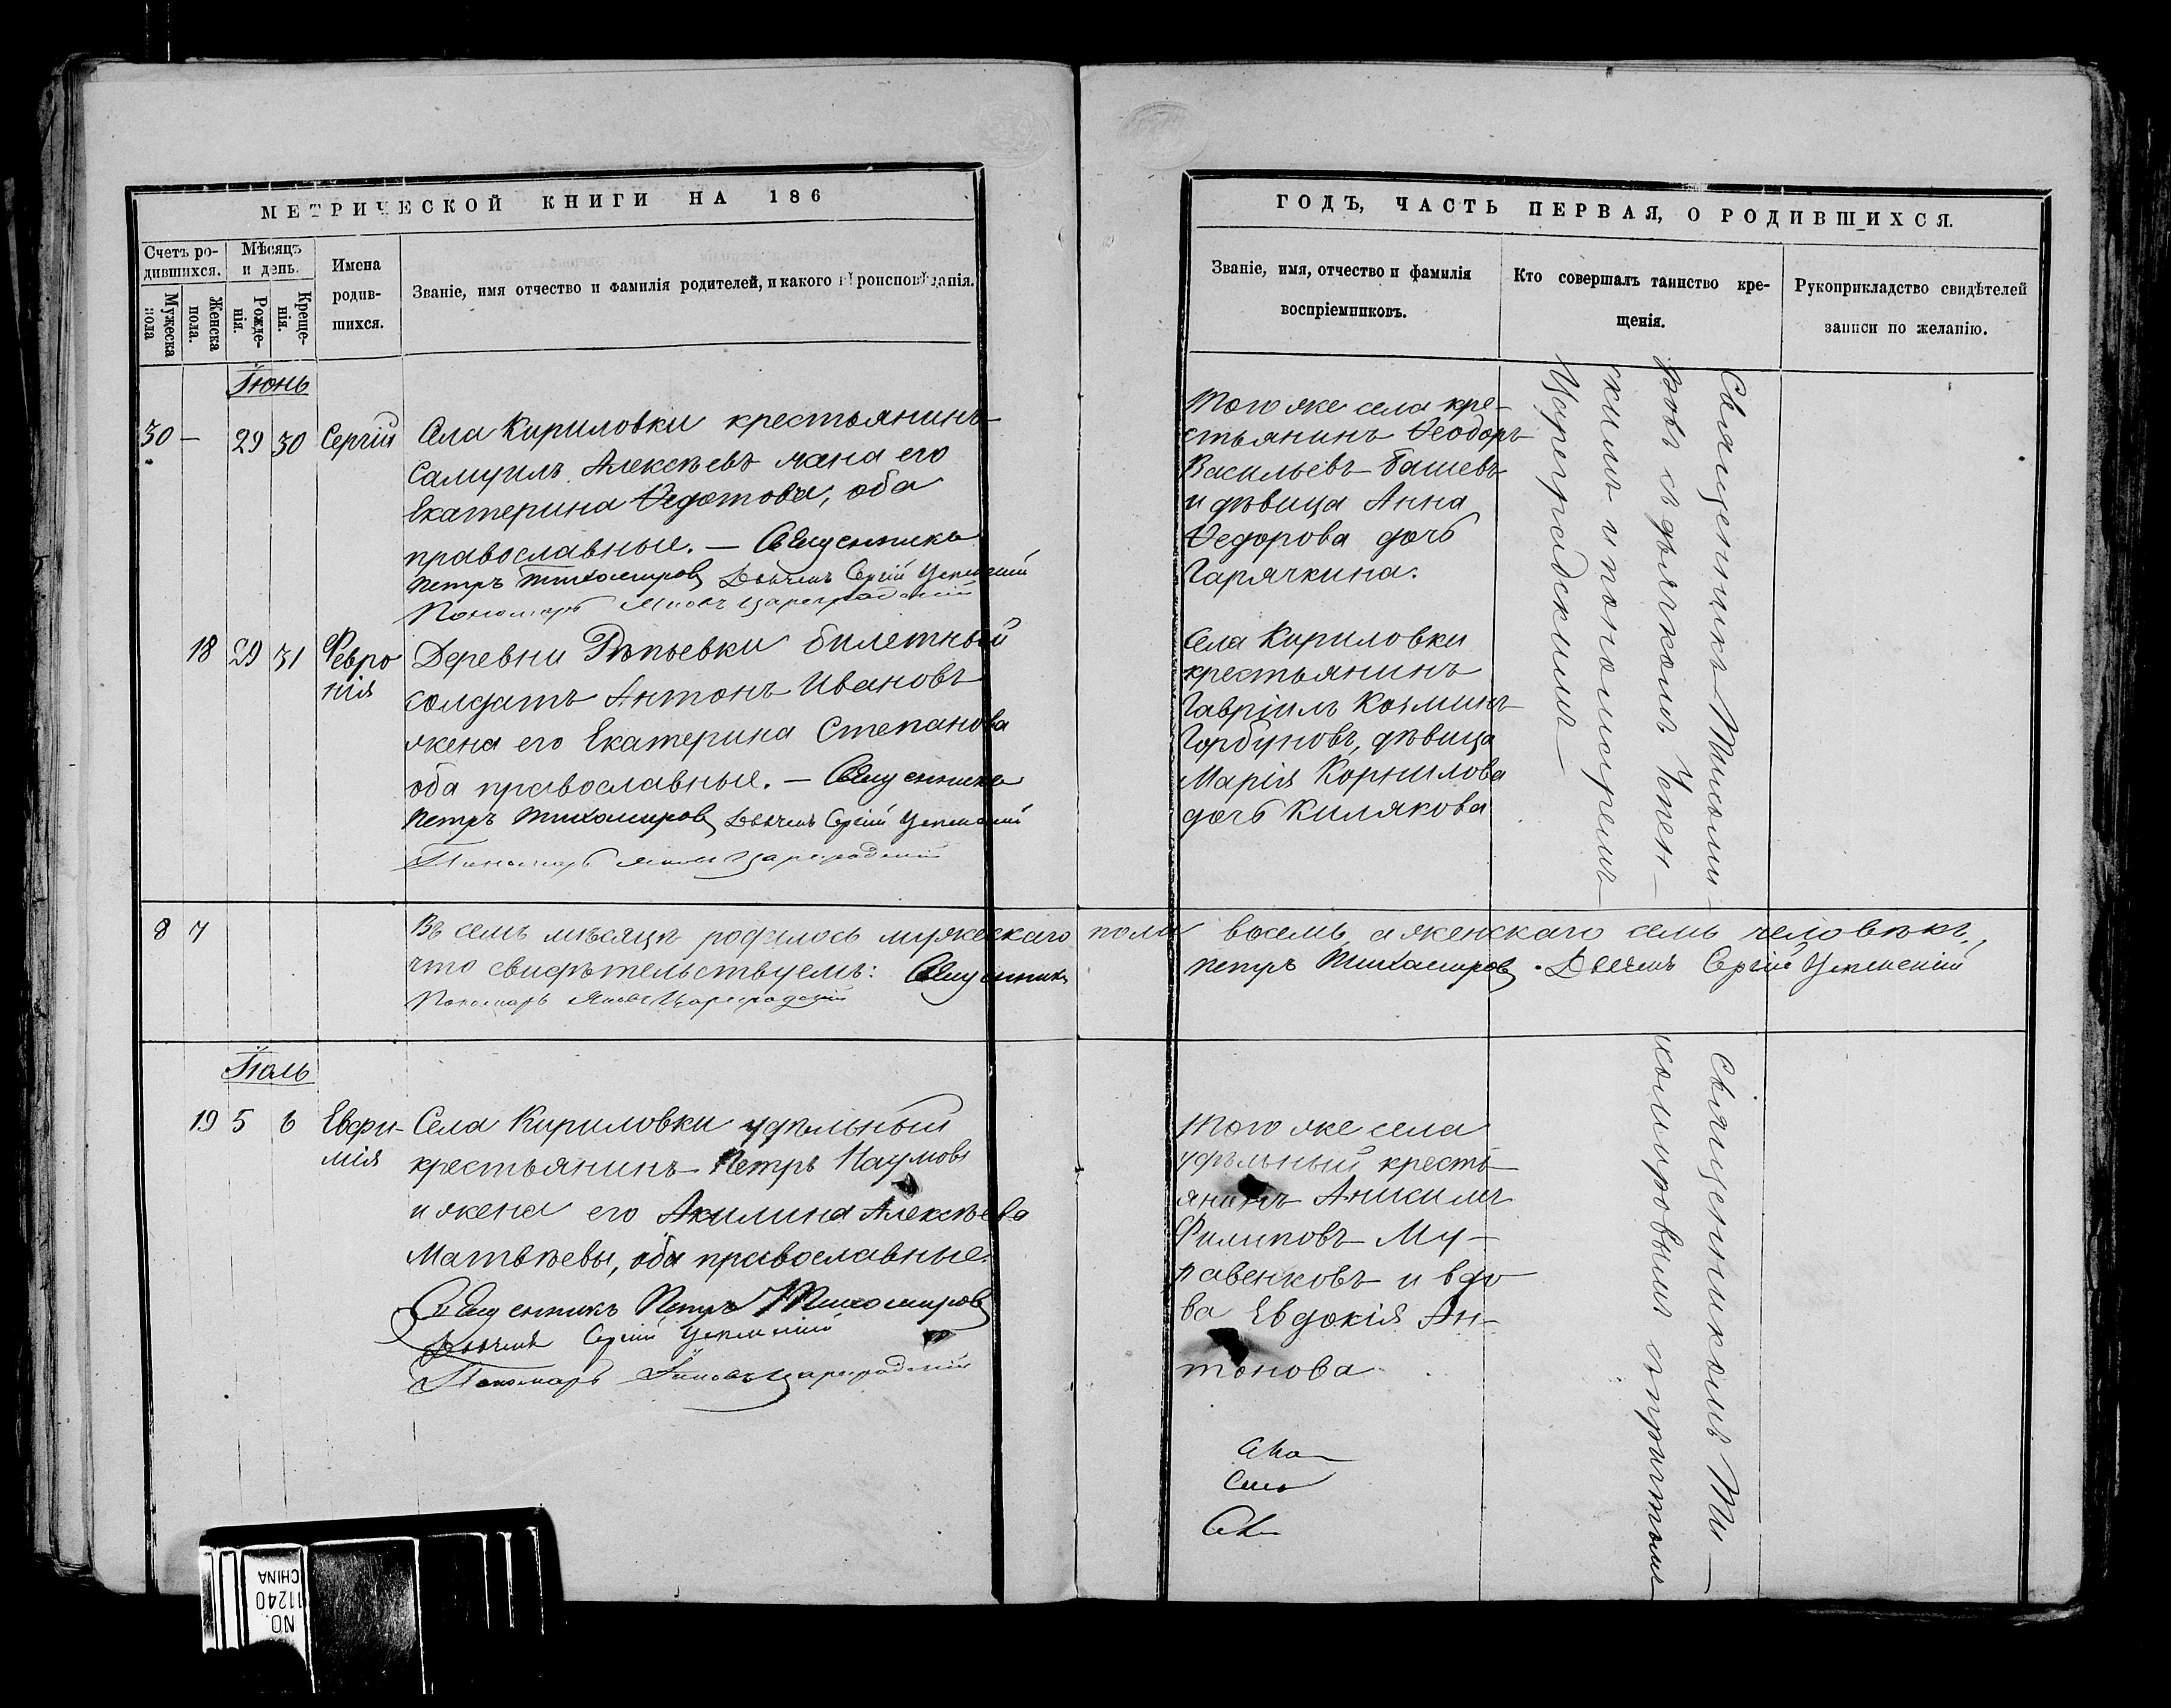 МЕТРИЧЕСКОЙ КНИГИ НА 186
Счетъ ро-
дившихся.
Мѣсяцъ
и день.
Мужеска
пола
Женска
пола.
Рожде-
нія.
Креще-
нія.
Имена
родив-
шихся.
Званіе, имя отчество и фамилія родителей, и какого вѣроисповѣданія.
Іюнь
30 — 29 30 Сергій
Села Кириловки крестьянинъ
Самуилъ Алексѣевъ жена его
Екатерина Ѳедотова, оба
православные. — Священникъ
Петръ Тихомировъ Дьячекъ Сергій Успенскій
Пономарь Яковъ Цареградскій
18 29 31 Февро
нія
Деревни Рѣпьевки билетный
солдатъ Антонъ Ивановъ
жена его Екатерина Степанова
оба православные. — Священникъ
Петръ Тихомировъ Дьячекъ Сергій Успенскій
Пономарь Яковъ Цареградскій
8 7
Въ семъ мѣсяцѣ родилось мужескаго пола восемь, а женскаго семь человѣкъ,
что свидѣтельствуемъ: Священникъ Петръ Тихомировъ. Дьячекъ Сергій Успенскій
Пономарь Яковъ Цареградскій
Іюль
19 5 6 Евфи-
мія
Села Кириловки удѣльный
крестьянинъ Петръ Наумовъ
и жена его Акилина Алексѣева
Матвѣевы, оба православные.
Священникъ Петръ Тихомировъ
Дьячекъ Сергій Успенскій
Пономарь Яковъ Цареградскій
ГОДЪ, ЧАСТЬ ПЕРВАЯ, О РОДИВШИХСЯ.
Званіе, имя, отчество и фамилія
воспріемниковъ.
Кто совершалъ таинство кре-
щенія.
Рукоприкладство свидѣтелей
записи по желанію.
Того же села кре-
стьянинъ Ѳеодоръ
Васильевъ Башевъ
и дѣвица Анна
Ѳедорова дочь
Гарячкина.
Села Кириловки
крестьянинъ
Гавріилъ Козминъ
Горбуновъ, дѣвица
Марія Корнилова
дочь Килякова
Священникъ Тихоми-
ровъ съ дьячкомъ Успен-
скимъ и пономаремъ
Цареградскимъ
Того же села
удѣльный кресть-
янинъ Аникимъ
Филиповъ Му-
равенковъ и вдо
ва Евдокія Ан-
тонова
Священникомъ Ти-
хомировымъ с причтомъ
NO.
11240
CHINA